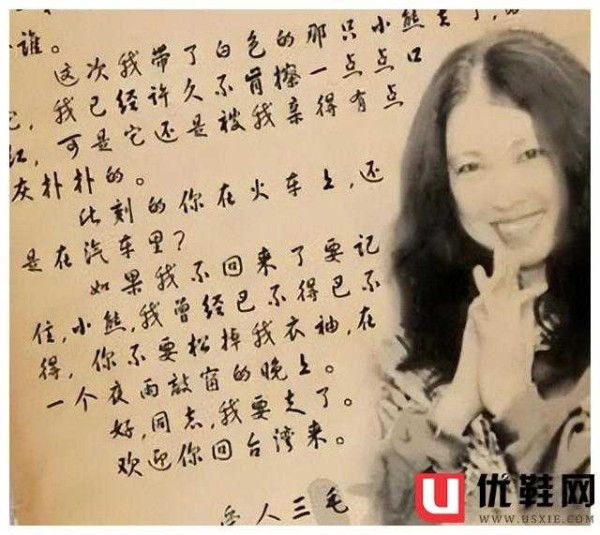 谁。
这次我带了白色的那只小熊去了,
我已经许久不肯擦一点点口
红,可是它还是被我亲得有点
灰朴朴的。
此刻的你在火车上,还
是在汽车里?
如果我不回来了要记
住,小熊,我曾经巴不得巴不
得,你不要松掉我衣袖,在
一个夜雨敲窗的晚上。
好,同志,我要走了。
欢迎你回台湾来。
人三毛
优鞋网
WWW.USXIE.COM